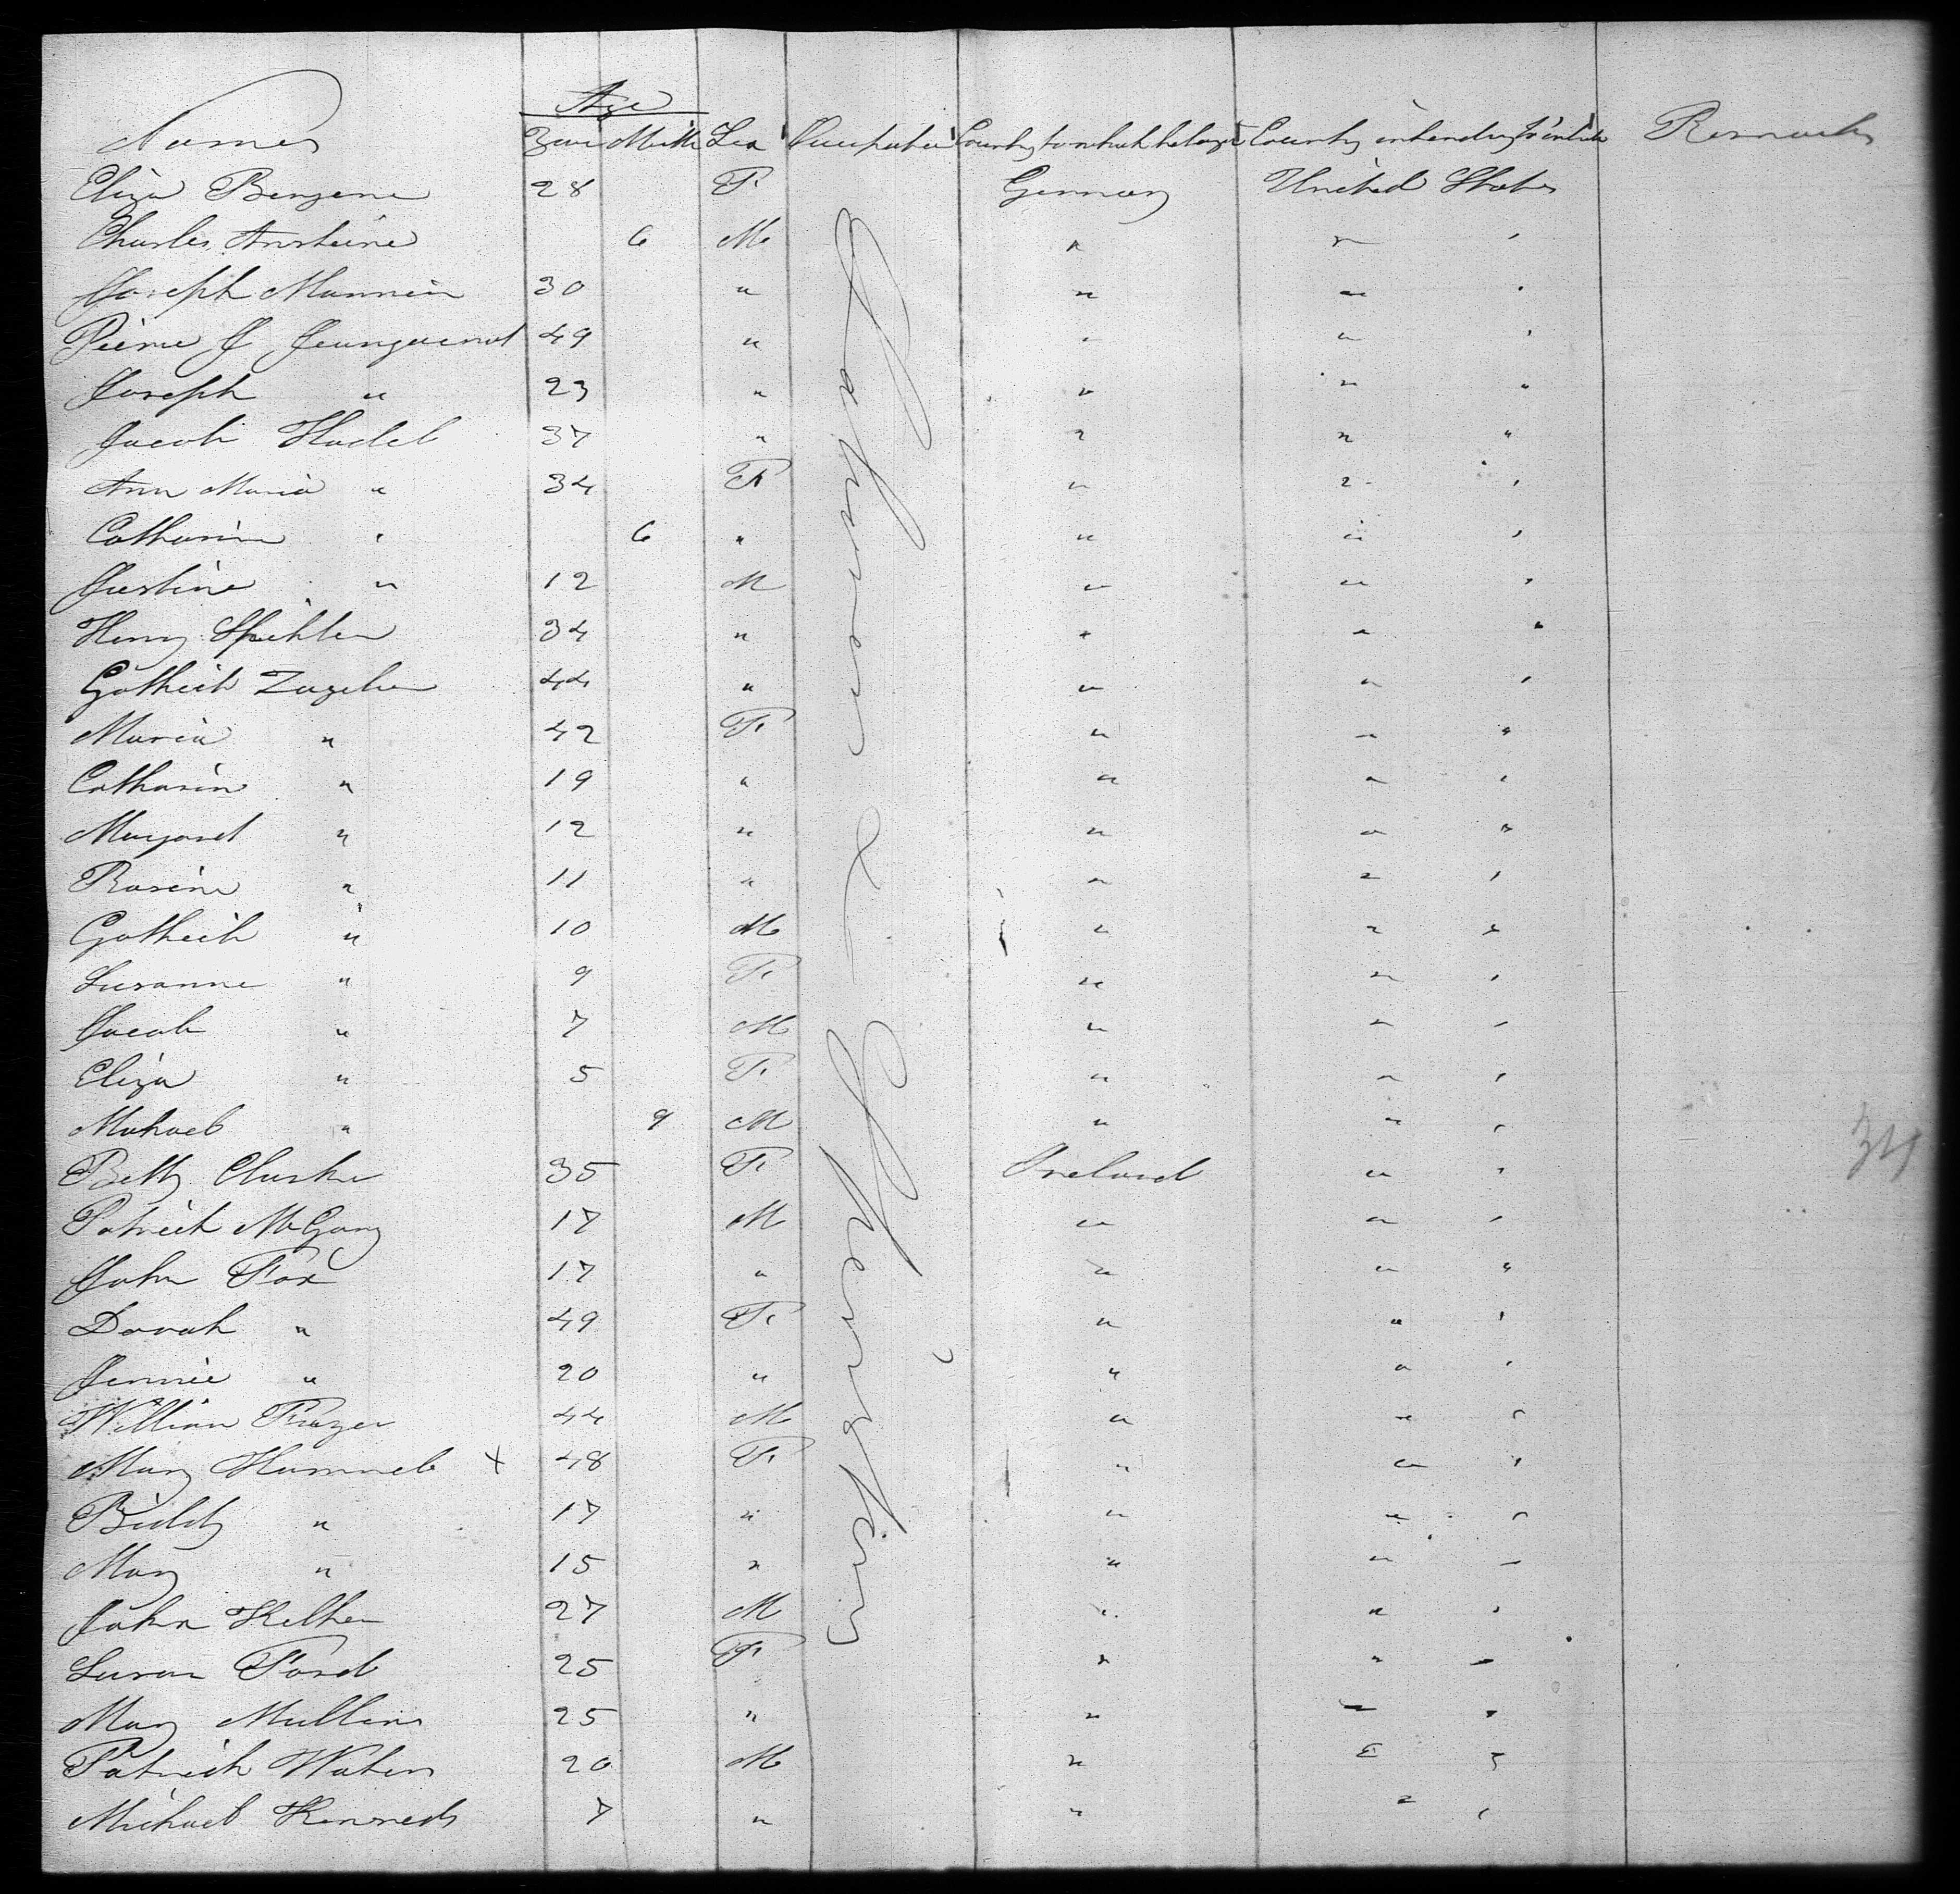 Age
Names Years Mnths Sex Occupation Country to which belongs Country intending to inhabit Remarks
Eliza 28 F. Germany United States
Charles Anstine 6 M " " "
Joseph Mannin 30 " " " "
Pierre J Jeanguenot 49 " " " "
Joseph " 23 " " " "
Jacob Hadel 37 " " " "
Ann Maria " 34 F " " "
Catharin " 6 " " " "
Justine " 12 M " " "
Henry Spihler 34 " " " "
Gothieb 44 " " " "
Maria " 42 F. " " "
Catharin " 19 " " " "
Margaret " 12 " " " "
Rosine " 11 " " " "
Gothieb " 10 M " " "
Susanne " 9 F. " " "
Jacob " 7 M " " "
Eliza " 5 F. " " "
Michael " 9 M " " "
Betty Clarke 35 F. Ireland " "
Patrick McGary 17 M " " "
John Fox 17 " " " "
Dorah " 49 F. " " "
Jennie " 20 " " " "
William Frazer 44 M " " "
Mary Hammel x 48 F. " " "
Biddy " 17 " " " "
Mary " 15 " " " "
John 27 M " " "
Susan Ford 25 F " " "
Mary Mullins 25 " " " "
Patrick Waters 20 M " " "
Michael Kennedy 7 " " " "